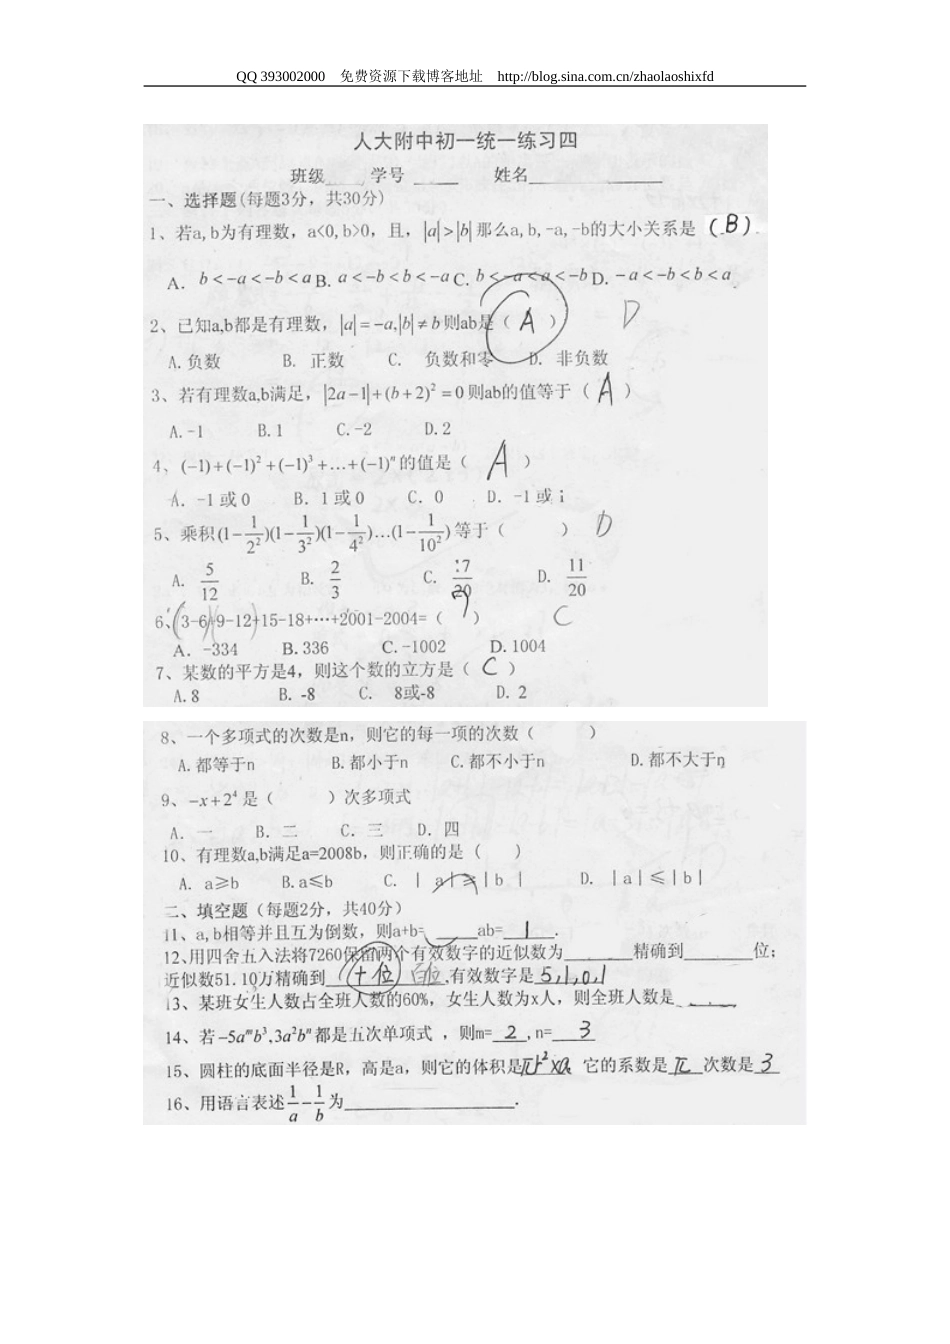 QQ 393002000 免费资源下载博客地址 http://blog.sina.com.cn/zhaolaoshixfd
人大附中初一统一练习四
班级____ 学号 _____ 姓名______________
一、选择题(每题3分，共30分)
1、若a,b为有理数，a<0,b>0，且，|a|>|b|那么a,b,-a,-b的大小关系是 (B)
A. b<-a<-b<a B. a<-b<b<-a C. b<-a<a<-b D. -a<-b<b<a
2、已知a,b都是有理数，|a|=-a,|b|≠b则ab是（ A ） D
A.负数 B. 正数 C. 负数和零 D. 非负数
3、若有理数a,b满足，|2a-1|+(b+2)²=0则ab的值等于（ A ）
A.-1 B.1 C.-2 D.2
4、(-1)+(-1)²+(-1)³+…+(-1)ⁿ的值是（ A ）
A. -1或0 B. 1或0 C. 0 D. -1或1
5、乘积(1-1/2²)(1-1/3²)(1-1/4²)…(1-1/10²)等于（ ） D
A. 5/12 B. 2/3 C. 17/20 D. 11/20
6、(3-6)(+9-12)+15-18+…+2001-2004=（ ） C
A. -334 B.336 C.-1002 D.1004
7、某数的平方是4，则这个数的立方是（ C ）
A.8 B. -8 C. 8或-8 D. 2
8、一个多项式的次数是n，则它的每一项的次数（ ）
A.都等于n B.都小于n C.都不小于n D.都不大于n
9、-x+2⁴是（ ）次多项式
A. 一 B. 二 C. 三 D. 四
10、有理数a,b满足a=2008b，则正确的是（ ）
A. a≥b B.a≤b C. |a|≥|b| D. |a|≤|b|
二、填空题（每题2分，共40分）
11、a,b相等并且互为倒数，则a+b=_____ab=__1__.
12、用四舍五入法将7260保留两个有效数字的近似数为_______精确到_______位；
近似数51.10万精确到 十位 百位 ,有效数字是 5,1,0,1
13、某班女生人数占全班人数的60%，女生人数为x人，则全班人数是______
14、若-5aᵐb³,3a²bⁿ都是五次单项式 ，则m= 2 ,n= 3
15、圆柱的底面半径是R，高是a，则它的体积是πr²×a 它的系数是 π 次数是 3
16、用语言表述1/a-1/b为_________________.